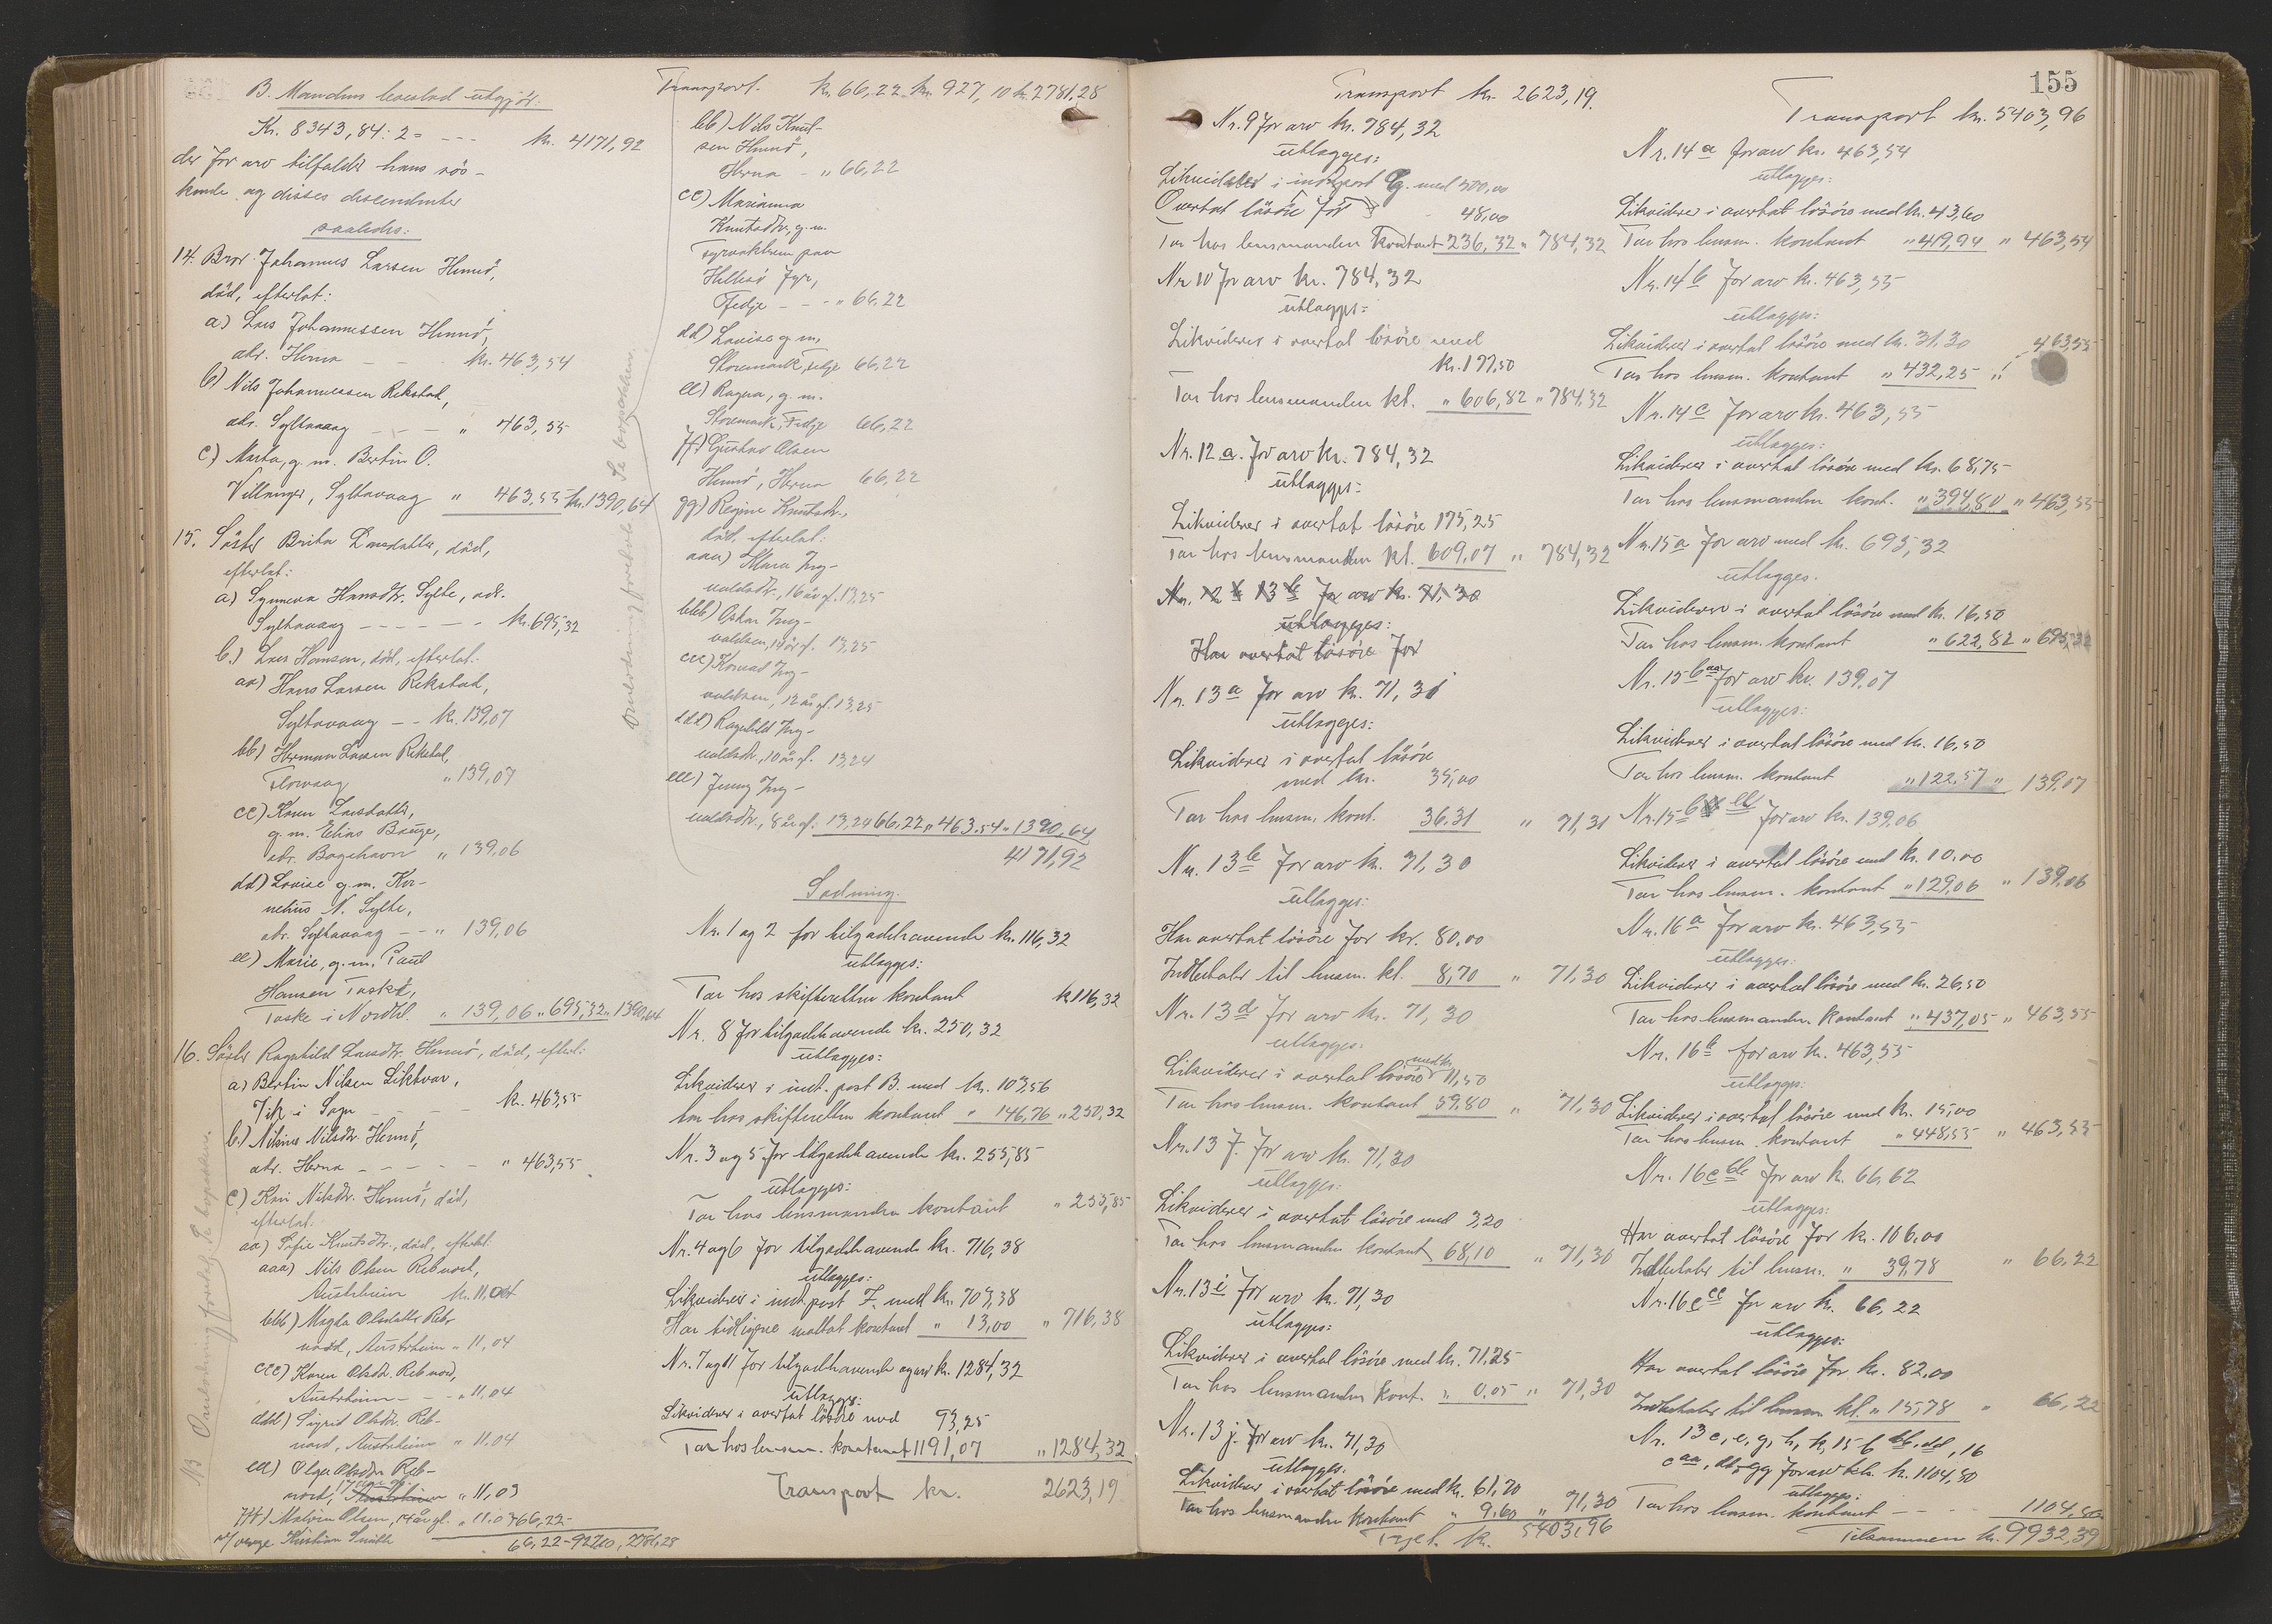 B. Mandens leveslod utgjör:
Kr. 8343,84: 2 = --- kr. 4171,92
der for arv tilfalder hans sös-
kende og disses descendenter
saaledes:
14. Bror Johannes Larsen Hennö,
död, efterlat:
a) Lars Johannessen Hennö,
adr. Herna - - - kr. 463,54
b) Nils Johannessen Rikstad,
adr. Syltnaaag - - - " 463,55
c) Marta, g. m. Bertin O.
Villanger, Syltavaag " 463,55 kr. 1390,64
15. Söster Brita Larsdatter, död,
efterlat:
a) Synneva Hansdtr. Sylte, adr.
Syltavaag - - - - - - kr. 695,32
b.) Lars Hansen, död, efterlat:
aa) Hans Larsen Rikstad,
Syltavaag - - kr. 139,07
bb) Herman Larsen Rikstad,
Florvaag " 139,07
cc) Karen Larsdatter,
g. m. Elias Bauge,
adr. " 139,06
dd) Lovise g. m. Kor-
nelius N. Sylte,
adr. Syltavaag - - " 139,06
ee) Marie, g. m. Paul
Hansen Taske,
Taske i Nordhl. " 139,06 " 695,32 " 1390,64
16. Söster Ragnhild Larsdtr. Hennö, död, efterl:
a) Bertin Nilsen Liktvor,
Vik i Sogn - - - kr. 463,55
b.) Nilsine Nilsdtr. Hennö,
adr. Herna - - - - - " 463,55
c) Kari Nilsdtr. Hennö, död,
efterlat:
aa) Sofie Knutsdtr., död, efterlat:
aaa) Nils Olsen Rebnord,
Austrheim kr. 11,04
bbb) Magda Olsdatter Reb-
nord, Austrheim " 11,04
ccc) Karen Olsdtr. Rebnord,
Austrheim - - - " 11,04
ddd) Sigrid Olsdtr. Reb-
nord, Austrheim " 11,04
eee) Olga Olsdtr. Reb-
nord, Austrheim " 11,03
fff) Malvin Olsen, 14 år gl. " 11,03 66,22
v/ verge Kristian Smith 66,22 - 927,10, 2781,28
NB Omlodning foretat. Se bogsakken.
Transport. kr. 66,22 kr. 927,10 kr. 2781,28
bb) Nils Knut-
sen Hennö,
Herna - " 66,22
cc) Marianna
Knutsdtr, g. m.
fyrvokteren paa
Hellesö fyr,
Fedje - - - " 66,22
dd) Lovise g. m.
Storemark, Fedje 66,22
ee) Ragna, g. m.
Storemark, Fedje 66,22
ff) Gustav Olsen
Hennö, Herna 66,22
gg) Regine Knutsdtr.,
död, efterlat:
aaa) Mara Ing-
valdsdtr., 16 år gl. 13,25
bbb) Oskar Ing-
valdsen, 14 år gl. 13,25
ccc) Konrad Ing-
valdsen, 12 år gl. 13,25
ddd) Ragnhild Ing-
valdsdtr., 10 år gl. 13,24
eee) Jenny Ing-
valdsdtr., 8 år gl. 13,24 66,22 " 463,54 " 1390,64
4171,92
Omlodning foretat. Se bogsakken.
Lodning.
Nr. 1 og 2 for tilgodehavende kr. 116,32
utlægges:
Tar hos skifteretten kontant kr 116,32
Nr. 8 for tilgodehavende kr. 250,32
utlægges:
Likviderer i indt. post B. med kr. 103,56
tar hos skifteretten kontant " 146,76 " 250,32
Nr. 3 og 5 for tilgodehavende kr. 255,85
utlægges:
Tar hos lensmanden kontant " 255,85
Nr. 4 og 6 for tilgodehavende kr. 716,38
utlægges:
Likviderer i indt. post F. med kr. 703,38
Har tidligere mottat kontant " 13,00 " 716,38
Nr. 7 og 11 for tilgodehavende og arv kr. 1284,32
utlægges:
Likviderer i overtat lösöre med 93,25
Tar hos lensm. kontant 1191,07 " 1284,32
Transport kr. 2623,19
Transport kr. 2623,19.
Nr. 9 for arv kr. 784,32
utlægges:
Likviderer i indt. post G. med 500,00
Overtat lösöre for 48,00
Tar hos lensmanden kontant 236,32 " 784,32
Nr 10 for arv kr. 784,32
utlægges:
Likviderer i overtat lösöre med
kr. 177,50
Tar hos lensmanden kt. " 606,82 " 784,32
Nr. 12 a. for arv kr. 784,32
utlægges:
Likviderer i overtat lösöre 175,25
Tar hos lensmanden kt. 609,07 " 784,32
Nr. 12 b 13 b for arv kr. 71,30
utlægges:
Har overtat lösöre for
Nr. 13 a for arv kr. 71,31
utlægges:
Likviderer i overtat lösöre
med kr. 35,00
Tar hos lensm. kont. 36,31 " 71,31
Nr. 13 b for arv kr. 71,30
utlægges:
Har overtat lösöre for kr. 80,00
Indbetaler til lensm. kt. 8,70 " 71,30
Nr. 13 d for arv kr. 71,30
utlægges:
Likviderer i overtat lösöre med kr. 11,50
Tar hos lensm. kontant 59,80 " 71,30
Nr. 13 f. for arv kr. 71,30
utlægges:
Likviderer i overtat lösöre med 3,20
Tar hos lensmanden kontant 68,10 " 71,30
Nr. 13 i for arv kr. 71,30
utlægges:
Likviderer i overtat lösöre med kr. 71,25
Tar hos lensmanden kont. " 0,05 " 71,30
Nr. 13 j. for arv kr. 71,30
utlægges:
Likviderer i overtat lösöre med kr. 61,70
Tar hos lensmanden kontant " 9,60 " 71,30
Trspt. kr. 5403,96
155
Transport kr. 5403,96
Nr. 14 a for arv kr. 463,54
utlægges:
Likviderer i overtat lösöre med kr. 43,60
Tar hos lensm. kontant " 419,94 " 463,54
Nr. 14 b for arv kr. 463,55
utlægges:
Likviderer i overtat lösöre med kr. 31,30
Tar hos lensm. kontant " 432,25 " 463,55
Nr. 14 c for arv kr. 463,55
utlægges:
Likviderer i overtat lösöre med kr. 68,75
Tar hos lensmanden kont. " 394,80 " 463,55
Nr. 15 a for arv med kr. 695,32
utlægges.
Likviderer i overtat lösöre med kr. 16,50
Tar hos lensm. kontant " 622,82 " 695,32
Nr. 15 b aa for arv kr. 139,07
utlægges:
Likviderer i overtat lösöre med kr. 16,50
Tar hos lensm. kontant " 122,57 " 139,07
Nr. 15 b ee for arv kr. 139,06
Likviderer i overtat lösöre med kr. 10,00
Tar hos lensm. kontant " 129,06 " 139,06
Nr. 16 a for arv kr. 463,55
utlægges:
Likviderer i overtat lösöre med kr. 26,50
Tar hos lensmanden kontant " 437,05 " 463,55
Nr. 16 b for arv kr. 463,55
utlægges:
Likviderer i overtat lösöre med kr. 15,00
Tar hos lensm. kontant " 448,55 " 463,55
Nr. 16 c bb for arv kr. 66,62
utlægges:
Har overtat lösöre for kr. 106,00
Indbetaler til lensm. " 39,78 " 66,22
Nr. 16 c cc for arv kr. 66,22
utlægges:
Har overtat lösöre for kr. 82,00
Indbetaler til lensm kt. " 15,78 " 66,22
Nr. 13 c, e, g, h, k, 15 b bb, dd, 16
c aa, dd-gg for arv tils. kr. 1104,80
utlægges:
Tar hos lensm. kontant - - 1104,80
Tilsammen kr. 9932,39